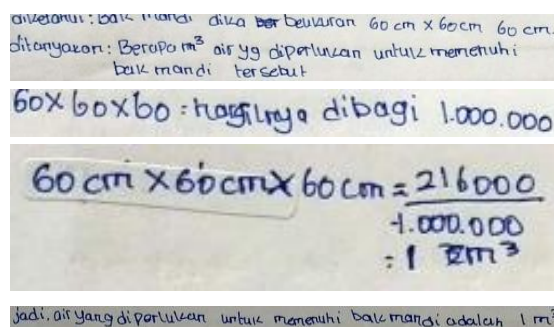 diketahui : bak mandi dika berukuran 60 cm x 60 cm 60 cm.
ditanyakan : Berapa m³ air yg diperlukan untuk memenuhi
bak mandi tersebut
60 x 60 x 60 = hasilnya dibagi 1.000.000
60 cm x 60 cm x 60 cm = 216000
1.000.000
= 1 m³
jadi, air yang diperlukan untuk memenuhi bak mandi adalah 1 m³